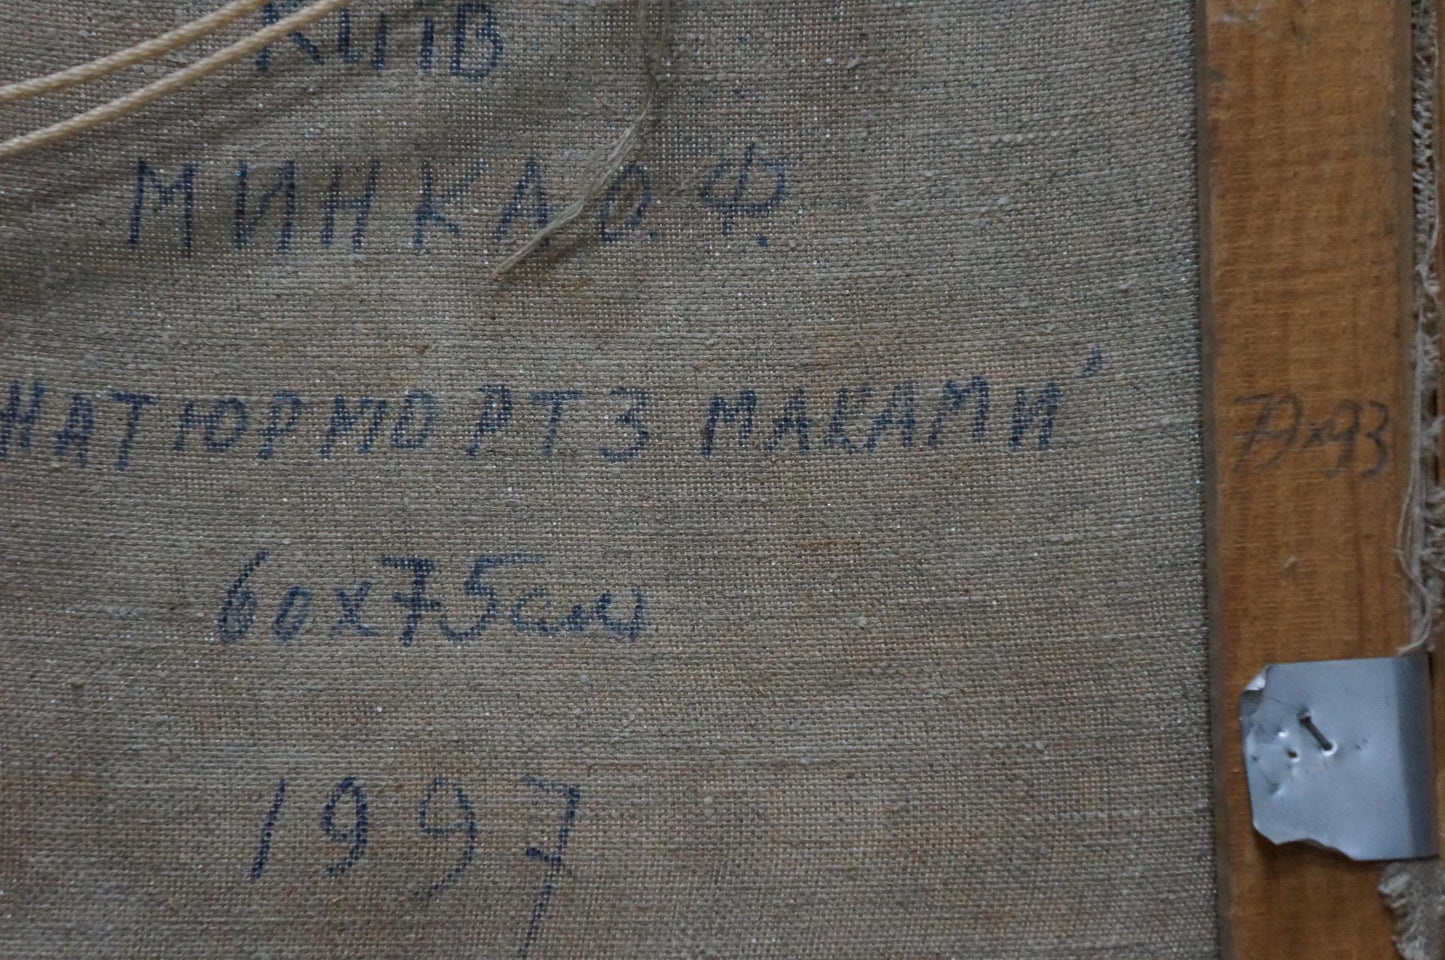 КИЇВ
МИНКА О. Ф.
НАТЮРМОРТ З МАКАМИ"
60x75см
1997
79x93